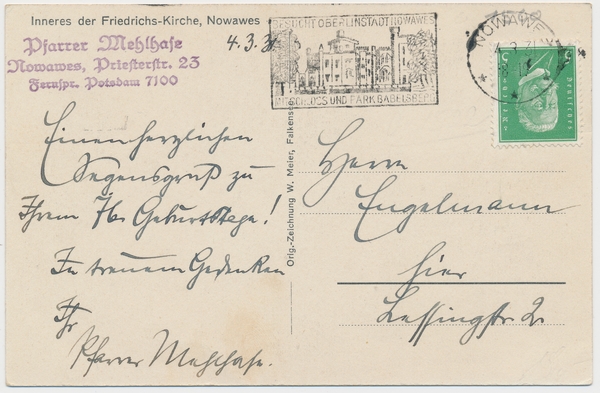 Inneres der Friedrichs-Kirche, Nowawes
Pfarrer Mehlhase
Nowawes, Priesterstr. 23
Fernspr. Potsdam 7100
4.3.31
BESUCHT OBERLINSTADT NOWAWES
MIT SCHLOSS UND PARK BABELSBERG
NOWAWES
4.3.31
Einen herzlichen
Segensgruß zu
Ihrem 76. Geburtstage!
In treuem Gedenken
Ihr
Pfarrer Mehlhase.
Orig.-Zeichnung W. Meier, Falkensee
Herrn
Engelmann
hier
Lessingstr 2